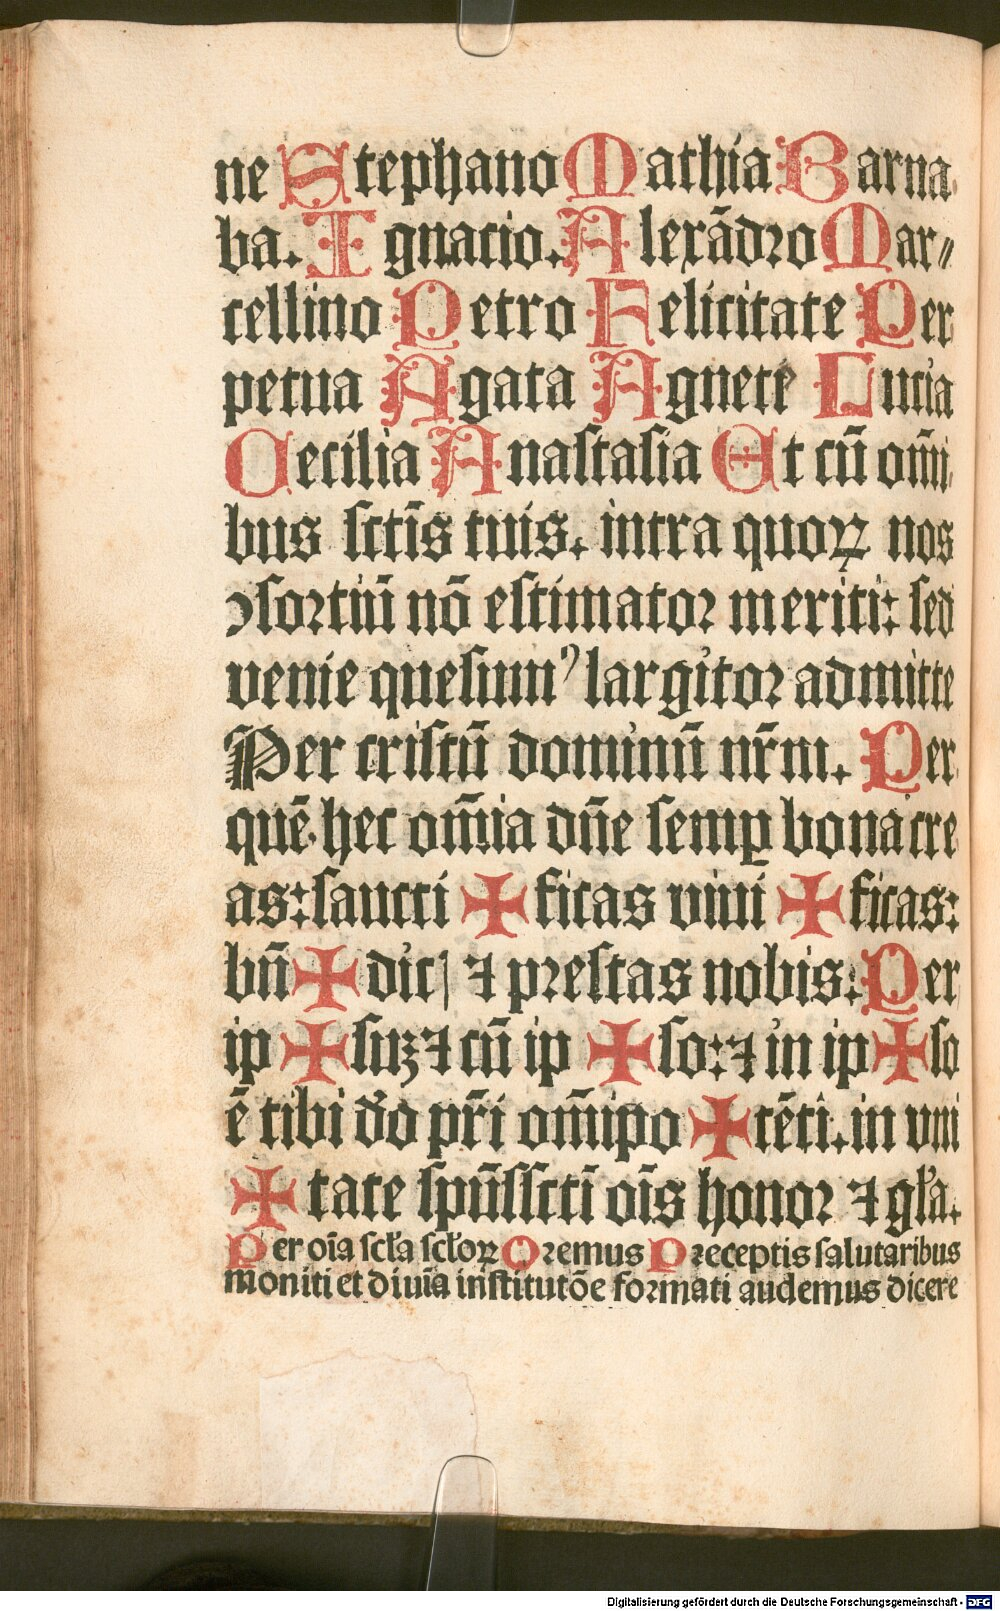 ne Stephano Mathia Barna
ba. Ignacio. Alexãdro Mar⸗
cellino Petro Felicitate Per
petua Agata Agnete Lucia
Cecilia Anastasia Et cũ om̃i
bus sctĩs tuis. intra quoꝝ nos
ꝯsortiũ nõ estimator meriti: sed
venie quesumꝰ largitor admitte
Per cristũ dominũ nr̃m. Per
quẽ hec om̃ia dñe semꝑ bona cre
as: sancti ✠ ficas viui ✠ ficas:
bñ ✠ dic| ⁊ prestas nobis: Per
ip ✠ suꝫ ⁊ cũ ip ✠ so: ⁊ in ip ✠ so
ẽ tibi do pr̃i om̃ipo ✠ tẽti. in vni
✠ tate spũssctĩ oĩs honor ⁊ gl̃a.
Per oĩa scl̃a scl̃oꝝ Oremus Preceptis salutaribus
moniti et diuĩa institutõe formati audemus dicere
Digitalisierung gefördert durch die Deutsche Forschungsgemeinschaft - DFG